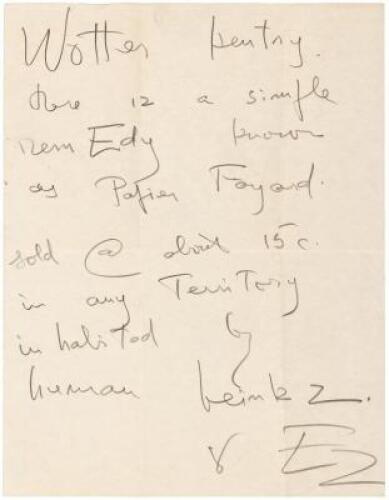 Wotter kentry.
there iz a simple
remEdy known
as Papier Fayard.
sold @ about 15c.
in any TerriTory
inhabited by
human beinkz.
v Ez